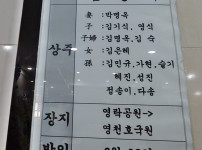 妻 : 박명옥
子 : 김기식, 영식
상주 子婦 : 김명옥, 김 숙
女 : 김은혜
孫 : 김민규, 가현, 슬기
혜진, 성진
정솔이, 다솜
장지 영락공원->
영천호국원
발인